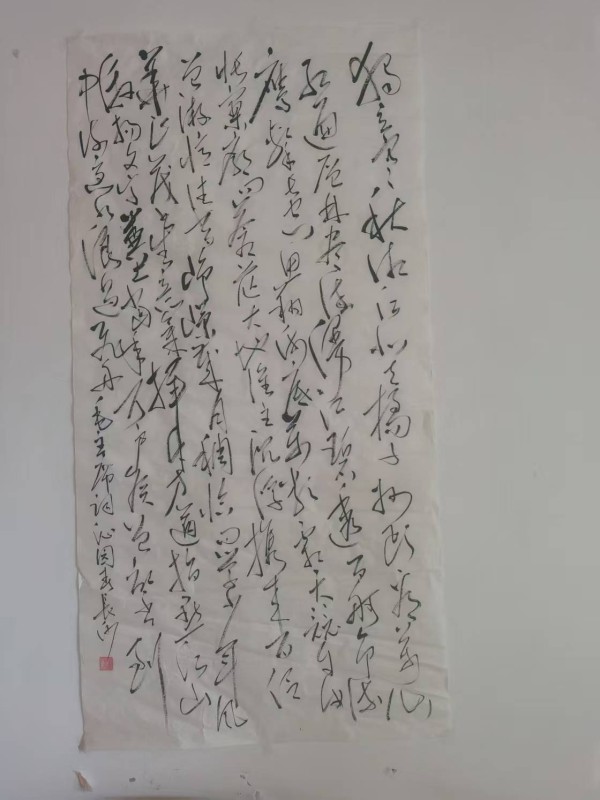 獨立寒秋湘江北去橘子洲头看萬山
红遍层林尽染漫江碧透百舸争流
鹰擊长空鱼翔浅底萬类霜天竞自由
怅寥廓问苍茫大地谁主沉浮携来百侣
曾游忆往昔峥嵘岁月稠恰同学少年风
華正茂书生意氣挥斥方遒指点江山
激扬文字粪土当年万户侯曾记否到
中流击水浪遏飞舟毛主席词沁园春长沙